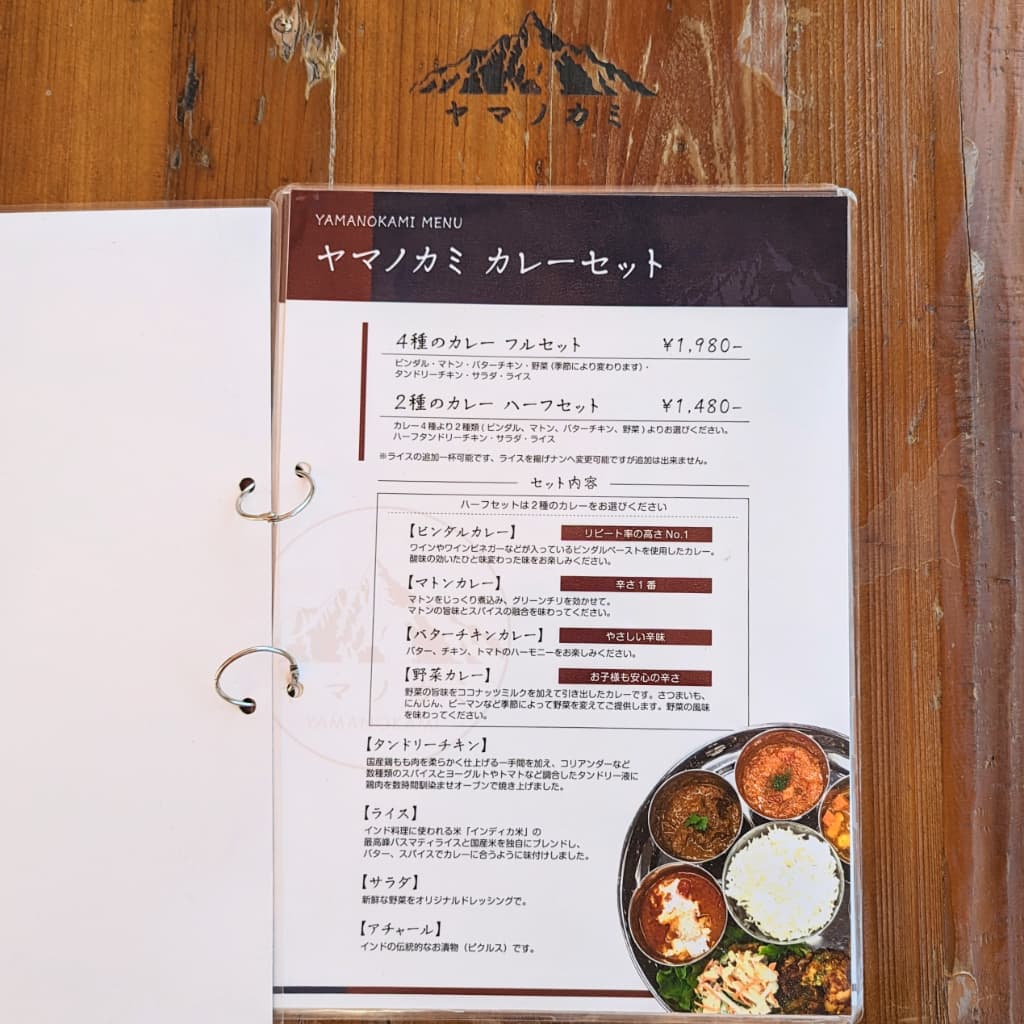 ヤマノカミ
YAMANOKAMI MENU
ヤマノカミ カレーセット
4種のカレー フルセット ¥1,980-
ビンダル・マトン・バターチキン・野菜(季節により変わります)・
タンドリーチキン・サラダ・ライス
2種のカレー ハーフセット ¥1,480-
カレー4種より2種類(ビンダル、マトン、バターチキン、野菜)よりお選びください。
ハーフタンドリーチキン・サラダ・ライス
※ライスの追加一杯可能です、ライスを揚げナンへ変更可能ですが追加は出来ません。
セット内容
ハーフセットは2種のカレーをお選びください
【ビンダルカレー】 リピート率の高さ No.1
ワインやワインビネガーなどが入っているビンダルペーストを使用したカレー。
酸味の効いたひと味変わった味をお楽しみください。
【マトンカレー】 辛さ1番
マトンをじっくり煮込み、グリーンチリを効かせて。
マトンの旨味とスパイスの融合を味わってください。
【バターチキンカレー】 やさしい辛味
バター、チキン、トマトのハーモニーをお楽しみください。
【野菜カレー】 お子様も安心の辛さ
野菜の旨味をココナッツミルクを加えて引き出したカレーです。さつまいも、
にんじん、ピーマンなど季節によって野菜を変えてご提供します。野菜の風味
を味わってください。
マノ
YAMANOKAMI
【タンドリーチキン】
国産鶏もも肉を柔らかく仕上げる一手間を加え、コリアンダーなど
数種類のスパイスとヨーグルトやトマトなど調合したタンドリー液に
鶏肉を数時間馴染ませオーブンで焼き上げました。
【ライス】
インド料理に使われる米「インディカ米」の
最高峰バスマティライスと国産米を独自にブレンドし、
バター、スパイスでカレーに合うように味付けしました。
【サラダ】
新鮮な野菜をオリジナルドレッシングで。
【アチャール】
インドの伝統的なお漬物（ピクルス）です。